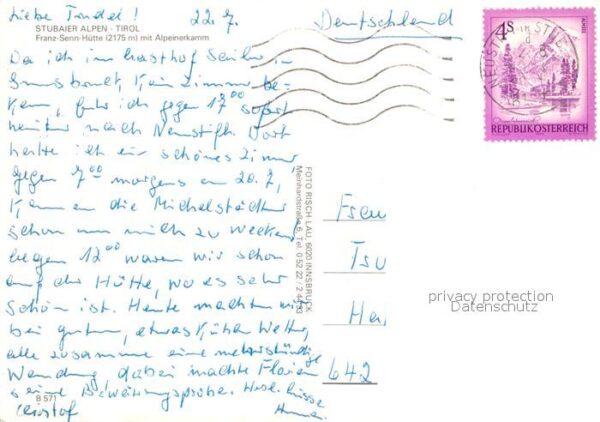 Liebe Trudel! 22.7.
STUBAIER ALPEN - TIROL
Franz-Senn-Hütte (2175 m) mit Alpeinerkamm
Da ich im Gasthof
Innsbruck, kein Zimmer be-
kam, fuhr ich gegen 17⁰⁰ sofort
weiter nach Neustift. Dort
hatte ich ein schönes Zimmer
gegen 7⁰⁰ morgens am 20.7.
kamen die Michelstädter
schon um mich zu wecken,
gegen 12⁰⁰ waren wir schon
auf der Hütte, wo es sehr
schön ist. Heute machten wir
bei gutem, etwas kühlen Wetter,
alle zusammen eine mehrstündige
Wandung, dabei machte Florian
seine Bewährungsprobe. Herzl. Grüsse
B 571
Christof
FOTO RISCH-LAU, 6020 INNSBRUCK
Meinhardstraße 6, Tel. 0 52 22 /
Deutschland
4S
REPUBLIK ÖSTERREICH
Frau
642
privacy protection
Datenschutz